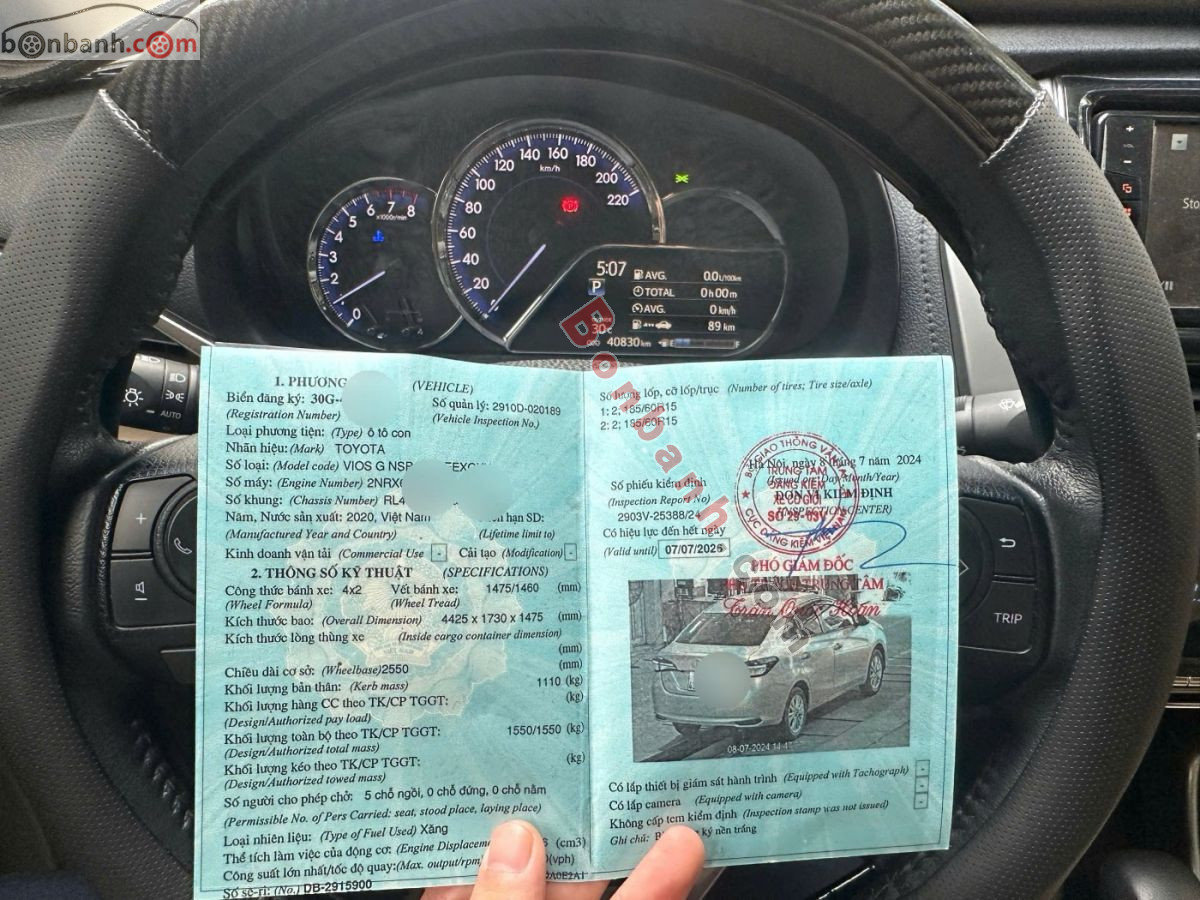 bonbanh.com
120 140 160 180 200 220
100 80 60 40 20
km/h
0 1 2 3 4 5 6 7 8
x1000r/min
5:07
P
30°C
AVG. 0.0L/100km
TOTAL 0h00m
AVG. 0 km/h
89 km
ODO 40830 km
E F
AUTO
VOL
Sto
TRIP
Bonbanh.com
1. PHƯƠNG (VEHICLE)
Biển đăng ký: 30G-
Số quản lý: 2910D-020189
(Registration Number)
(Vehicle Inspection No.)
Loại phương tiện: (Type) ô tô con
Nhãn hiệu: (Mark) TOYOTA
Số loại: (Model code) VIOS G NSP
Số máy: (Engine Number) 2NRX
Số khung: (Chassis Number) RL4
Năm, Nước sản xuất: 2020, Việt Nam
hạn SD:
(Manufactured Year and Country)
(Lifetime limit to)
Kinh doanh vận tải (Commercial Use - Cải tạo (Modification) -
2. THÔNG SỐ KỸ THUẬT (SPECIFICATIONS)
Công thức bánh xe: 4x2 Vết bánh xe: 1475/1460 (mm)
(Wheel Formula) (Wheel Tread)
Kích thước bao: (Overall Dimension) 4425 x 1730 x 1475 (mm)
Kích thước lòng thùng xe (Inside cargo container dimension)
(mm)
Chiều dài cơ sở: (Wheelbase) 2550 (mm)
Khối lượng bản thân: (Kerb mass) 1110 (kg)
Khối lượng hàng CC theo TK/CP TGGT: (kg)
(Design/Authorized pay load)
Khối lượng toàn bộ theo TK/CP TGGT: 1550/1550 (kg)
(Design/Authorized total mass)
Khối lượng kéo theo TK/CP TGGT: (kg)
(Design/Authorized towed mass)
Số người cho phép chở: 5 chỗ ngồi, 0 chỗ đứng, 0 chỗ nằm
(Permissible No. of Pers Carried: seat, stood place, laying place)
Loại nhiên liệu: (Type of Fuel Used) Xăng
Thể tích làm việc của động cơ: (Engine Displaceme (cm3)
Công suất lớn nhất/tốc độ quay: (Max. output/rpm) (vph)
Số sê-ri: (No.) DB-2915900
Số lượng lốp, cỡ lốp/trục (Number of tires; Tire size/axle)
1: 2; 185/60R15
2: 2; 185/60R15
Hà Nội, ngày 8 tháng 7 năm 2024
(Issued on: Day/Month/Year)
Số phiếu kiểm định
ĐƠN VỊ KIỂM ĐỊNH
(Inspection Report No)
(INSPECTION CENTER)
2903V-25388/24
Có hiệu lực đến hết ngày
(Valid until) 07/07/2026
BỘ GIAO THÔNG VẬN TẢI
TRUNG TÂM
ĐĂNG KIỂM
XE CƠ GIỚI
SỐ 29-03V
CỤC ĐĂNG KIỂM VIỆT NAM
PHÓ GIÁM ĐỐC
08-07-2024 14:4
Có lắp thiết bị giám sát hành trình (Equipped with Tachograph) -
Có lắp camera (Equipped with camera) -
Không cấp tem kiểm định (Inspection stamp was not issued) -
Ghi chú: ký nền trắng